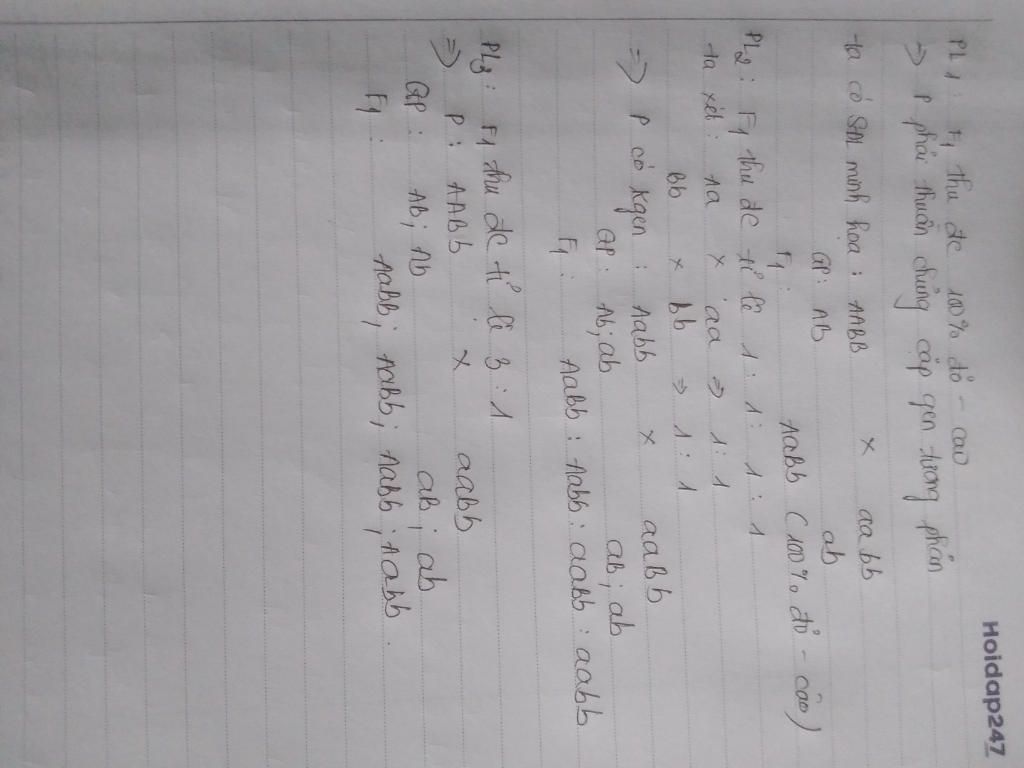 Hoidap247
PL 1 : F1 thu đc 100% đỏ - cao
=> P phải thuần chủng cặp gen tương phản
ta có Sơ minh họa : AABB × aabb
GP : AB ab
F1 : AaBb (100% đỏ - cao)
PL2 : F1 thu đc tỉ lệ 1 : 1 : 1 : 1
ta xét : Aa × aa => 1 : 1
Bb × bb => 1 : 1
=> P có kgen : Aabb × aaBb
GP : Ab ; ab aB ; ab
F1 : AaBb : Aabb : aaBb : aabb
PL3 : F1 thu đc tỉ lệ 3 : 1
=> P : AABb × aaBb
GP : AB ; Ab aB ; ab
F1 : AaBB ; AaBb ; AaBb ; Aabb .